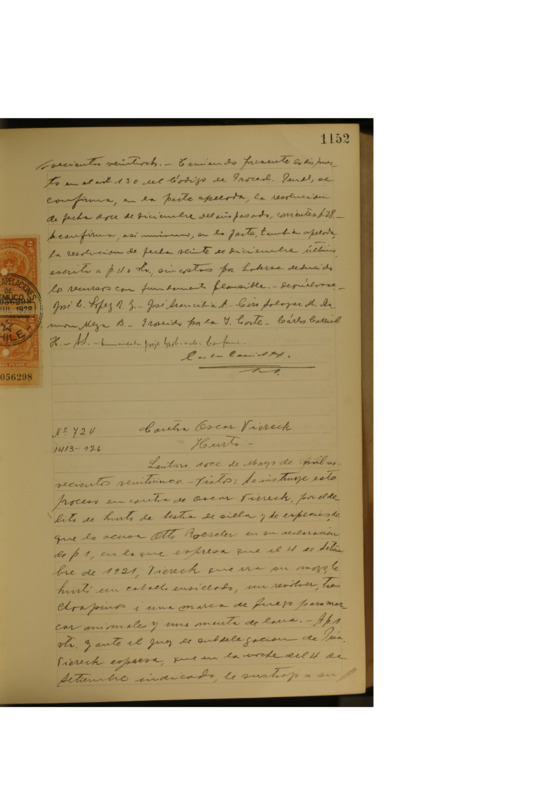 1152
novecientos veintiocho. - Teniendo presente lo dispues-
to en el art. 130 del Código de Proced. Penal, se
confirma, en la parte apelada, la resolucion
de fecha doce de Diciembre del año pasado, corriente a f. 28 -
i se confirma, asi mismo, en la parte tambien apelada
la resolucion de fecha veinte de Diciembre último,
escrita a f. vta, sin costas por haberse deducido
los recursos con fundamento plausible. - Devuélvase -
José C. Lopez R. G. - José A - Luis R. Ra-
mon Meza B. - Proveido por la I. Corte - Cárlos
H. -
APELACIONES
DE
TEMUCO
1928
CHILE
056298
Nº 724
Contra Oscar Viereck
1413-926
Hurto -
Lautaro, doce de Mayo de mil no-
vecientos veinticinco - Vistos: Se instruye este
proceso en contra de Oscar Viereck, por de-
lito de hurto de bestia de silla y de especies, de
que lo acusa Otto en su declaracion
de f 1, en la que espresa que el 4 de Setiem-
bre de 1921, Viereck que era su mozo, le
hurtó un caballo ensillado, un revólver, tres
choapinos i una marca de fuego para mar
car animales y una manta de lana. - A f. 1
vta. y ante el juez de subdelegacion de
Viereck espresa, que en la noche del 4 de
Setiembre indicado, le sustrajo a su